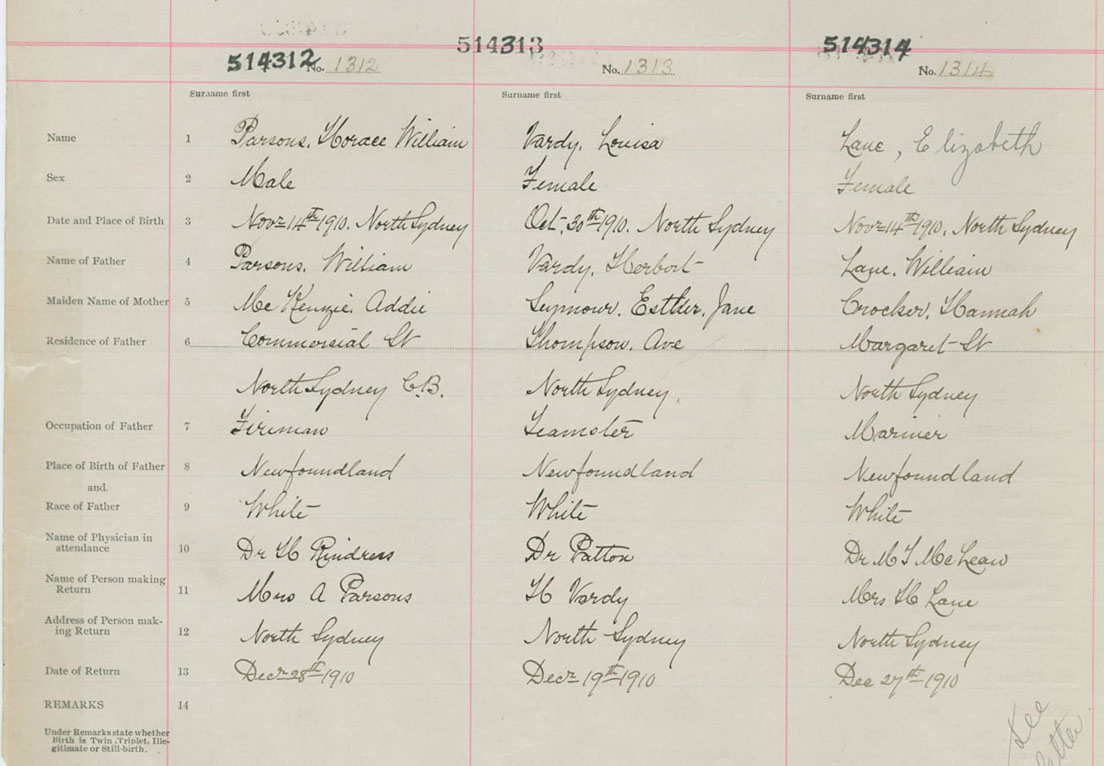 514312 No. 1312 514313 No. 1313 514314 No. 1314
Surname first Surname first Surname first
Name 1 Parsons, Horace William Vardy, Louisa Lane, Elizabeth
Sex 2 Male Female Female
Date and Place of Birth 3 Novr 14th 1910. North Sydney Oct. 20th 1910. North Sydney Novr 14th 1910. North Sydney
Name of Father 4 Parsons. William Vardy. Herbert Lane. William
Maiden Name of Mother 5 McKenzie. Addie Seymour. Esther. Jane Crocker. Hannah
Residence of Father 6 Commercial St Thompson. Ave Margaret St
North Sydney C.B. North Sydney. North Sydney
Occupation of Father 7 Fireman Teamster Mariner
Place of Birth of Father 8 Newfoundland Newfoundland Newfoundland
and.
Race of Father 9 White White White
Name of Physician in
attendance 10 Dr H Rindress Dr Patton Dr M T McLean
Name of Person making
Return 11 Mrs A Parsons H Vardy Mrs H Lane
Address of Person mak-
ing Return 12 North Sydney North Sydney North Sydney
Date of Return 13 Decr 28th 1910 Decr 19th 1910 Dec 27th 1910
REMARKS 14
Under Remarks state whether
Birth is Twin, Triplet, Ille-
gitimate or Still-birth.
See
letter